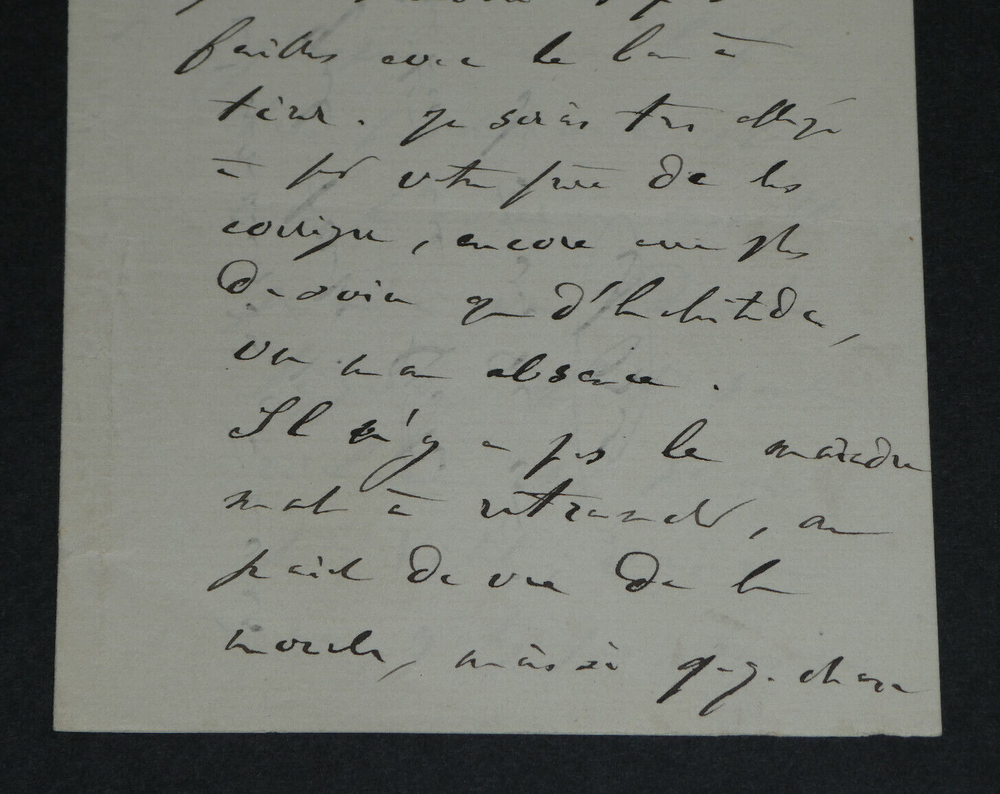 feuilles avec le bon à
tirer. Je serais très obligé
à votre de les
corriger, encore avec plus
de soin que d'habitude,
vu mon absence.
Il n'y a pas le moindre
mot à retrancher, au
point de vue de la
morale, mais si q.q. chose